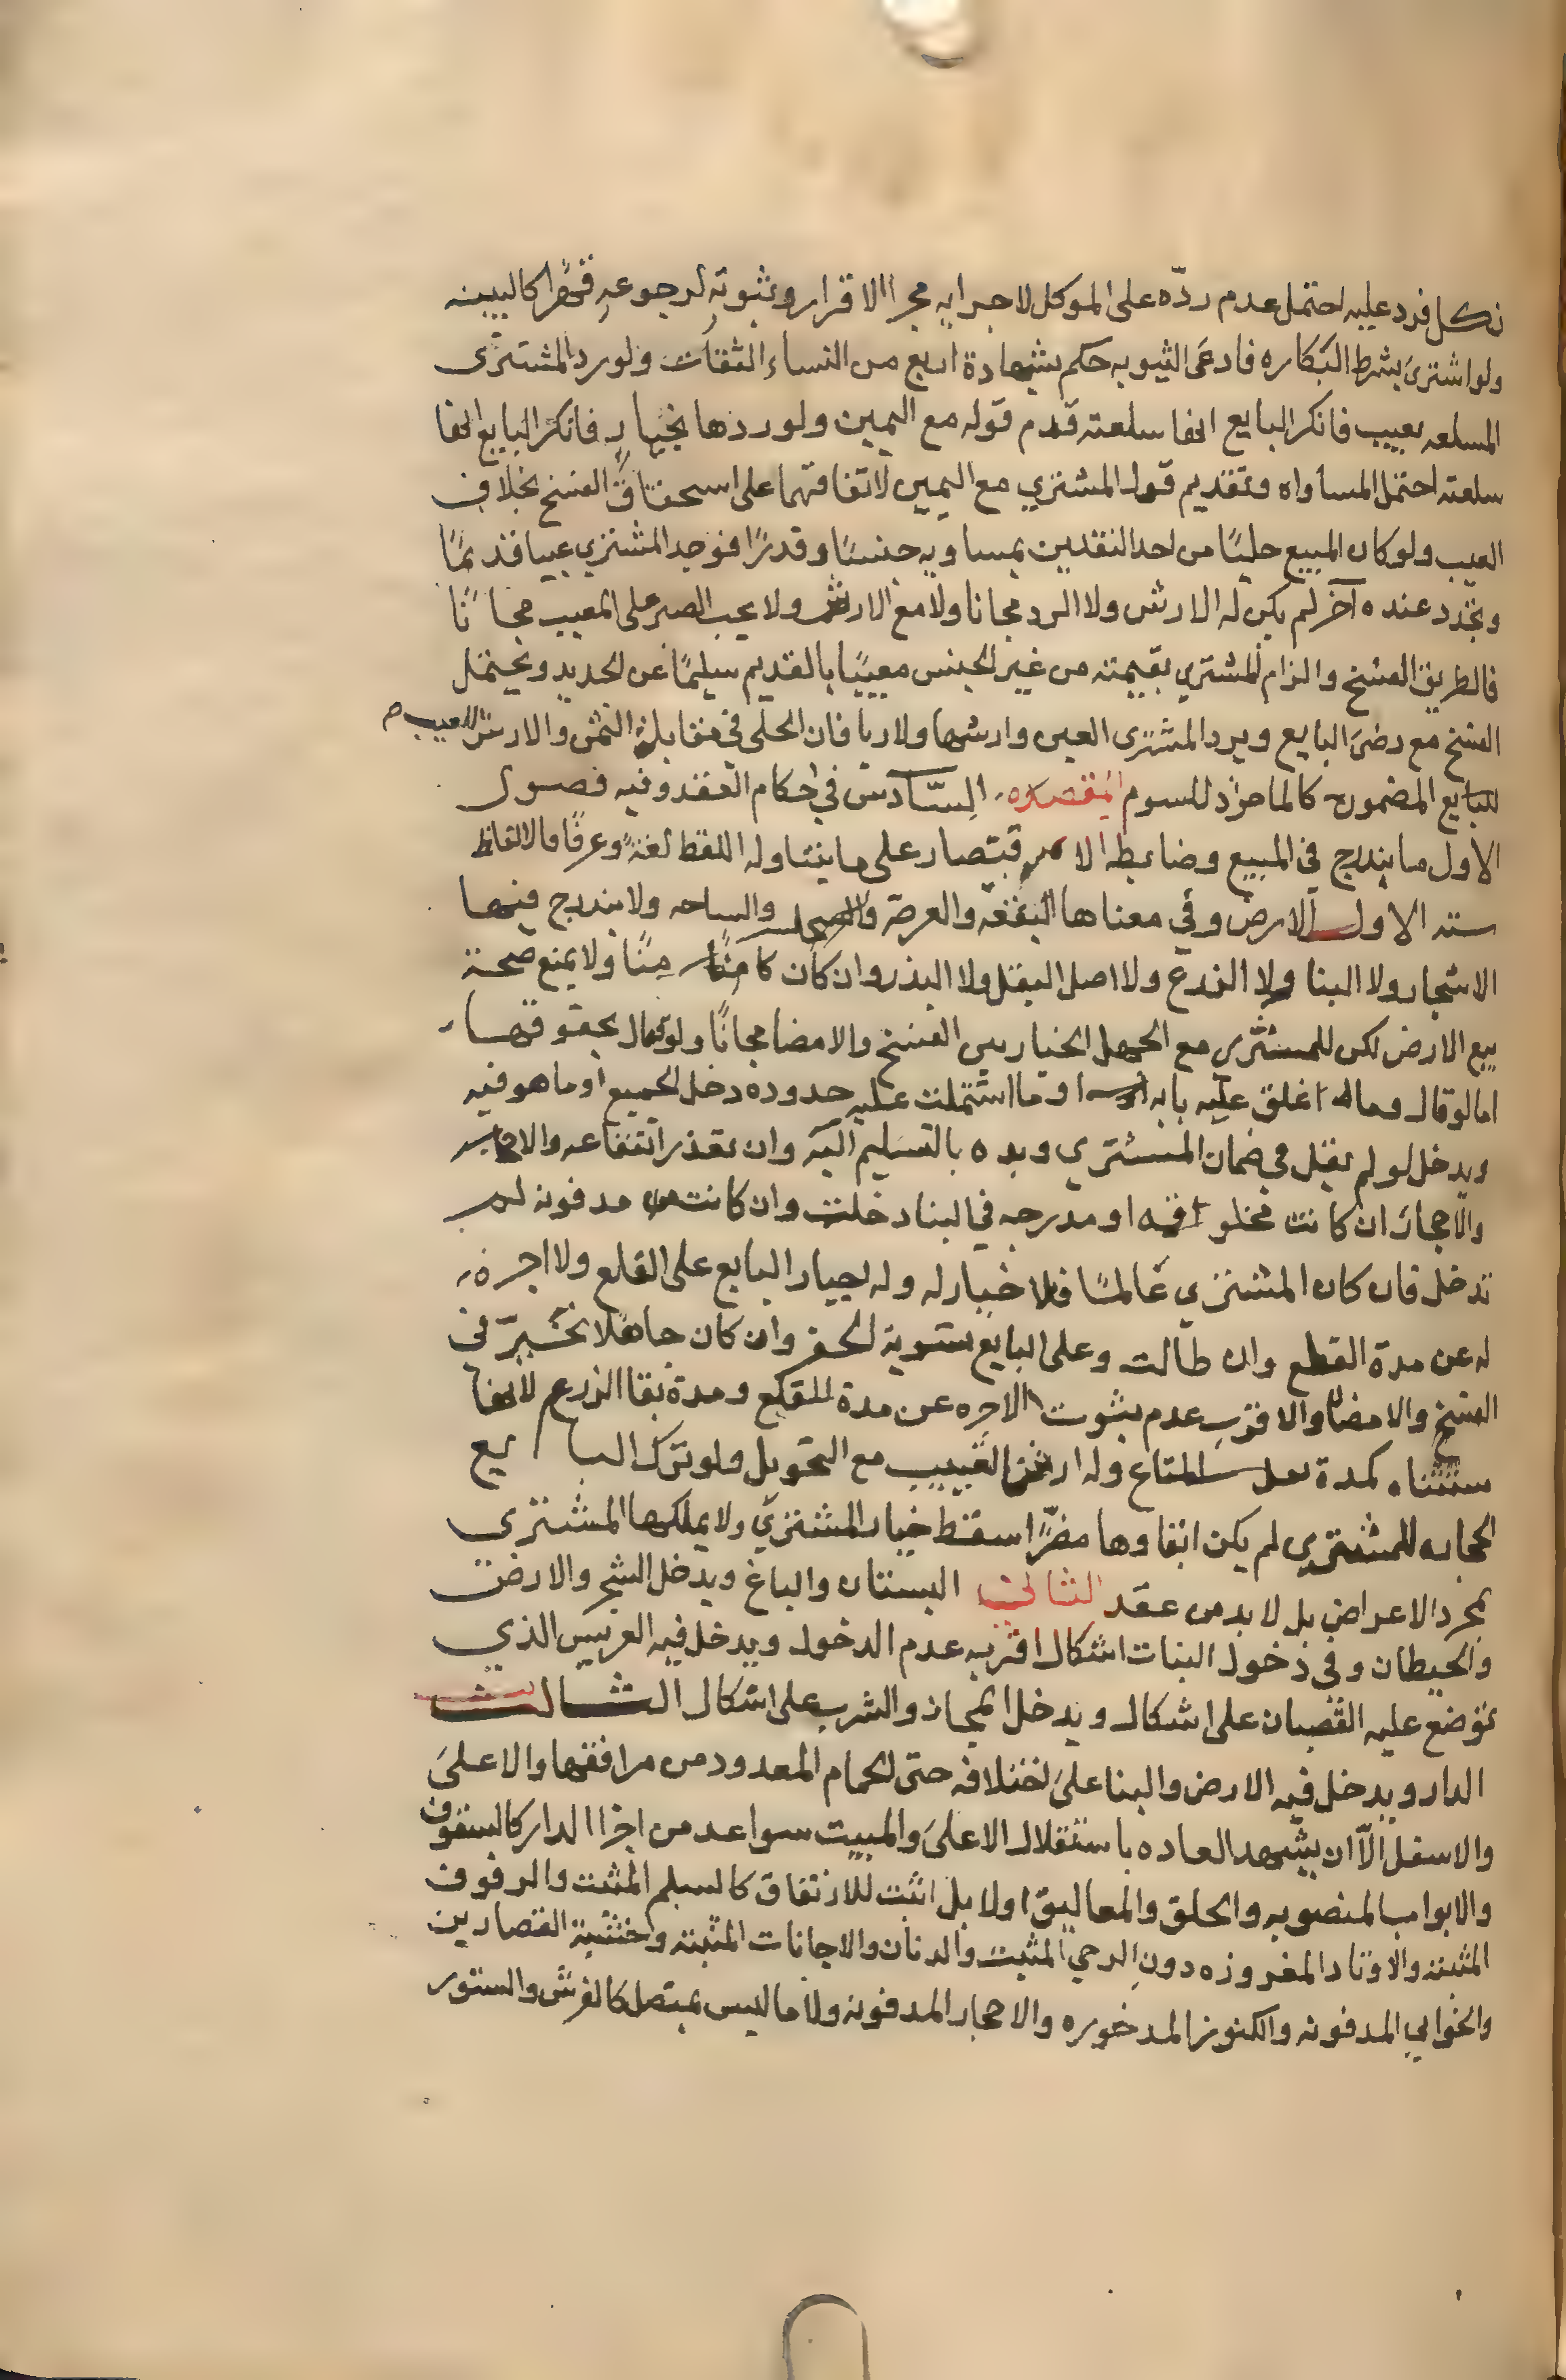 نكل فرد عليه احتمل عدم ردّه على الموكل لاجرايه مجرا الاقرار وثبوته لرجوعه قهرًا كالبينه
ولو اشترى بشرط البكاره فادعى الثيوبه حكم بشهادة اربع من النساء الثقات ولو رد المشترى
السلعه بعيب فانكر البايع انها سلعته قدم قوله مع اليمين ولو ردها بخيار فانكر البايع انها
سلعته احتمل المساواه وتقديم قول المشتري مع اليمين لاتفاقهما على استحقاق الفسخ بخلاف
العيب ولو كان المبيع حليًا من احد النقدين بمساويه جنسًا وقدرًا فوجد المشتري عيبا قديمًا
وتجدد عنده آخر لم يكن له الارش ولا الرد مجانا ولا مع الارش ولا يجب الصبر على المعيب مجانًا
فالطريق الفسخ والزام المشتري بقيمته من غير الجنس معيبًا بالقديم سليمًا عن الجديد ويحتمل
الفسخ مع رضى البايع ويرد المشترى العين وارشها ولا ربا فان الحلى في مقابلة الثمن والارش للعيب
للبايع المضمون كالماخوذ للسوم المقصد السّادس في احكام العقد وفيه فصول
الاول ما يندرج في المبيع وضابطه الاقتصار على ما يتناوله اللفظ لغةً وعرفًا فالالفاظ
سته الاول الارض وفي معناها البقعه والعرصة والساحه ولا يندرج فيها
الاشجار ولا البنا ولا الزرع ولا اصل البقل ولا البذر وان كان كامنًا ولا يمنع صحة
بيع الارض لكن للمشترى مع الجهل الخيار بين الفسخ والامضا مجانًا ولو قال بحقوقها
اما لو قال وما اغلق عليه بابه او ما اشتملت عليه حدوده دخل الجميع او ما هو فيه
ويدخل لو لم نقل في ضمان المشتري ويده بالتسليم اليه وان تعذر انتفاعه
والاحجار ان كانت مخلوقة او مدرجه في البنا دخلت وان كانت مدفونه لم
تدخل فان كان المشتري عالمًا فلا خيار له وله اجبار البايع على القلع ولا اجره
له عن مدة القطع وان طالت وعلى البايع تسوية الحفر وان كان جاهلا تخيّر في
الفسخ والامضاء والاقرب عدم ثبوت الاجره عن مدة القلع ومدة بقا الزرع لانها
مستثناه كمدة المتاع وله ارش التعييب مع التحويل ولو ترك البايع
الحجاره للمشتري لم يكن ابقاوها مضرًّا سقط خيار المشتري ولا يملكها المشترى
بمجرد الاعراض بل لا بد من عقد الثانى البستان والباغ ويدخل الشجر والارض
والحيطان وفي دخول البنات اشكال اقربه عدم الدخول ويدخل فيه العريش الذي
توضع عليه القضبان على اشكال ويدخل المجاز والشرب على اشكال الثالث
الدار ويدخل فيه الارض والبنا على اختلافه حتى الحمام المعدود من مرافقها والاعلى
والاسفل الّا ان يشهد العاده باستقلال الاعلى والمبيت سوا عد من اجزا الدار كالسقوف
والابواب المنصوبه والحلق والمعاليق اولا بل اثبت للارتفاق كالسلم المثبت والرفوف
المثبته والاوتاد المغروزه دون الرحي المثبت والدنان والاجانات المثبته وخشبة القصارين
والخوابي المدفونه والكنوز المدخوره والاحجار المدفونه ولا ما ليس بمتصل كالفرش والستور